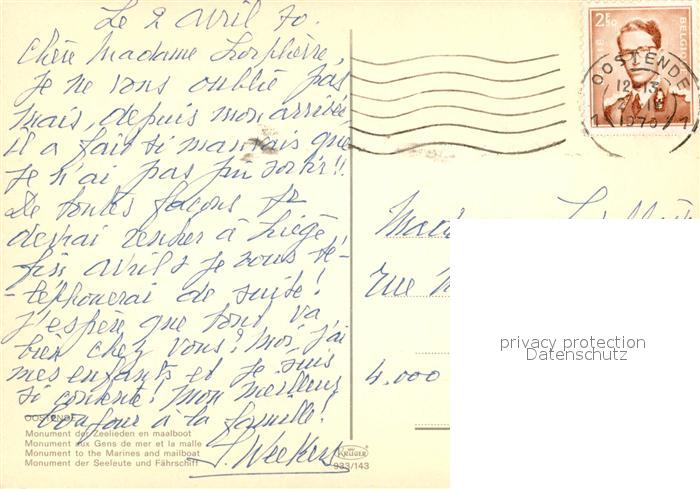 Le 2 avril 70.
Chère Madame Lorphèvre,
Je ne vous oublie pas
mais, depuis mon arrivée
il a fait si mauvais que
je n'ai pas pu sortir!!
De toutes façons je
devrai rentrer à Liège
fin avril & je vous té-
-téphonerai de suite!
J'espère que tout va
bien chez vous? Moi, j'ai
mes enfants et je suis
si contente! Mon meilleur
bonjour à la famille!
OOSTENDE
Monument der Zeelieden en maalboot
Monument aux Gens de mer et la malle
Monument to the Marines and mailboat
Monument der Seeleute und Fährschiff
KRÜGER
933/143
2F50
BELGIE
OOSTENDE
12-13
1970
1 1
rue
4.000
privacy protection
Datenschutz